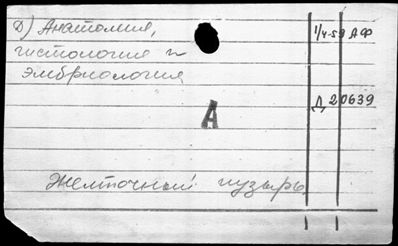 Д) Анатомия, 1/4-59 АФ
гистология и
эмбриология
Д 20639
А
Желточный пузырь